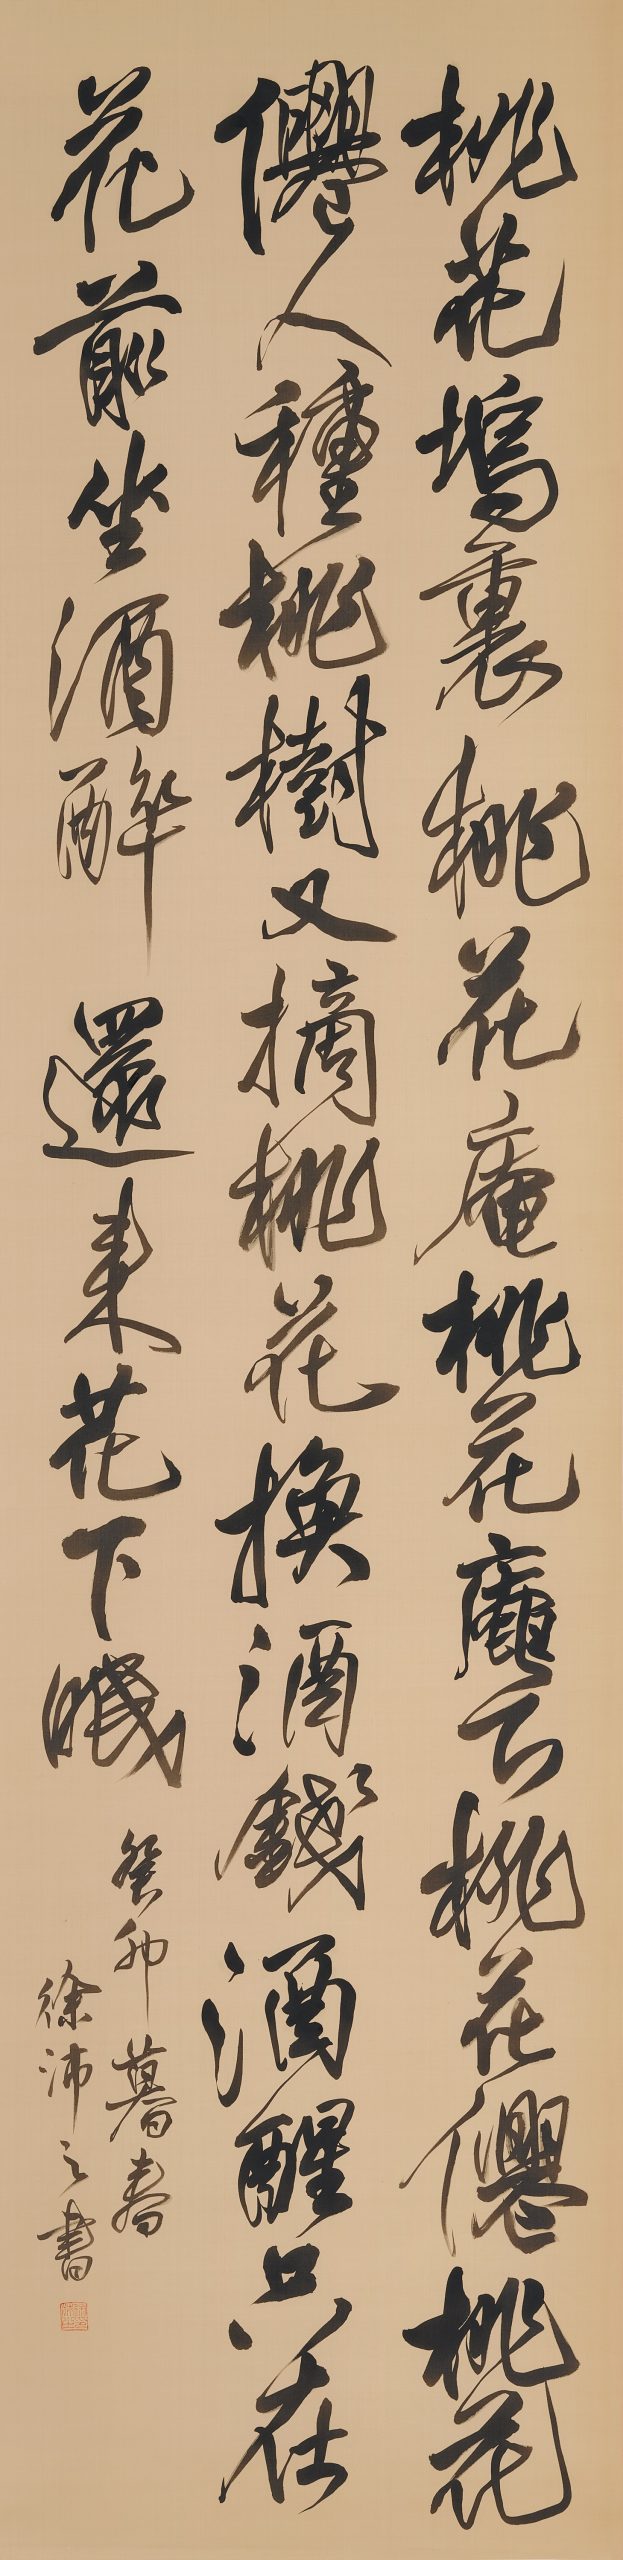 桃花塢裏桃花庵桃花庵下桃花僊桃花
僊人種桃樹又摘桃花換酒錢酒醒只在
花前坐酒醉還來花下眠
癸卯暮春
徐沛之書